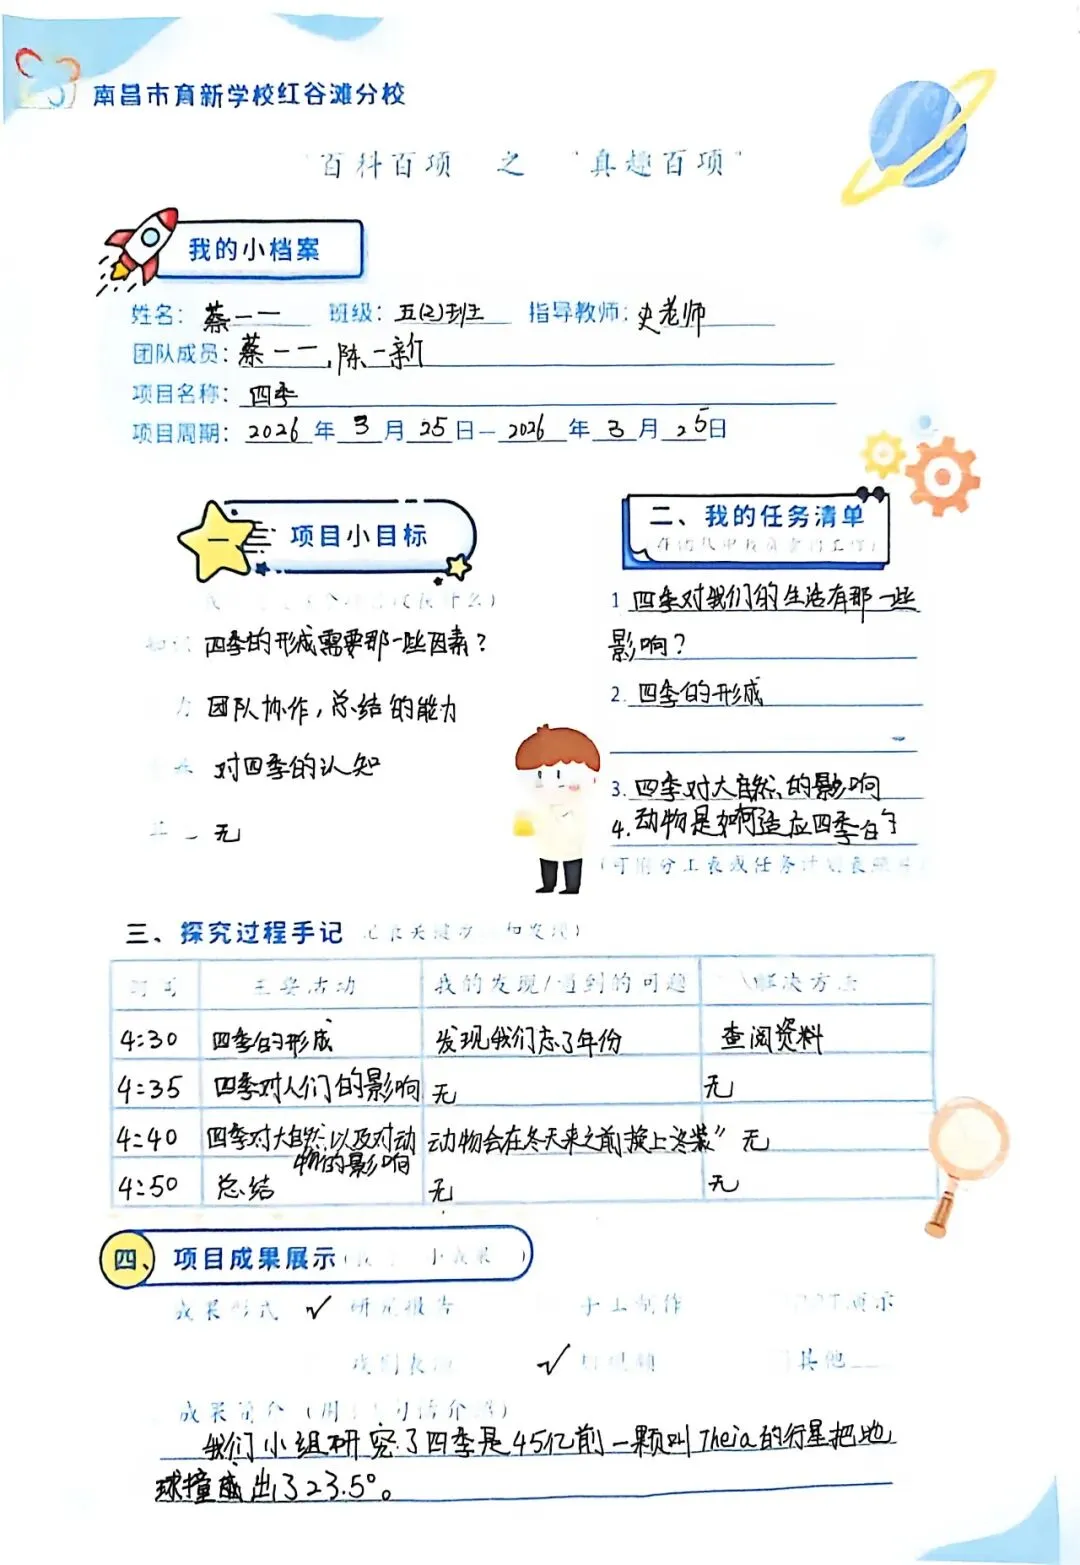 南昌市育新学校红谷滩分校
"百科百项 之 "真趣百项"
我的小档案
姓名: 蔡一一 班级: 五(2)班 指导教师: 史老师
团队成员: 蔡一一,陈一新
项目名称: 四季
项目周期: 2026年3月25日—2026年3月25日
一 项目小目标
四季的形成需要那一些因素?
力 团队协作,总结的能力
对四季的认知
无
二、我的任务清单
1 四季对我们的生活有那一些
影响?
2. 四季的形成
3. 四季对大自然的影响
4. 动物是如何适应四季的
(可附分工表或任务计划表
三、探究过程手记
主要活动 我的发现/遇到的问题 解决方法
4:30 四季的形成 发现我们忘了年份 查阅资料
4:35 四季对人们的影响 无 无
4:40 四季对大自然以及对动物的影响 动物会在冬天来之前换上冬装" 无
4:50 总结 无 无
四、项目成果展示
成果形式 ✓ 研究报告 手工制作 演示
✓ 其他
成果简介
我们小组研究了四季是45亿前一颗叫Theia的行星把地
球撞出了23.5°。